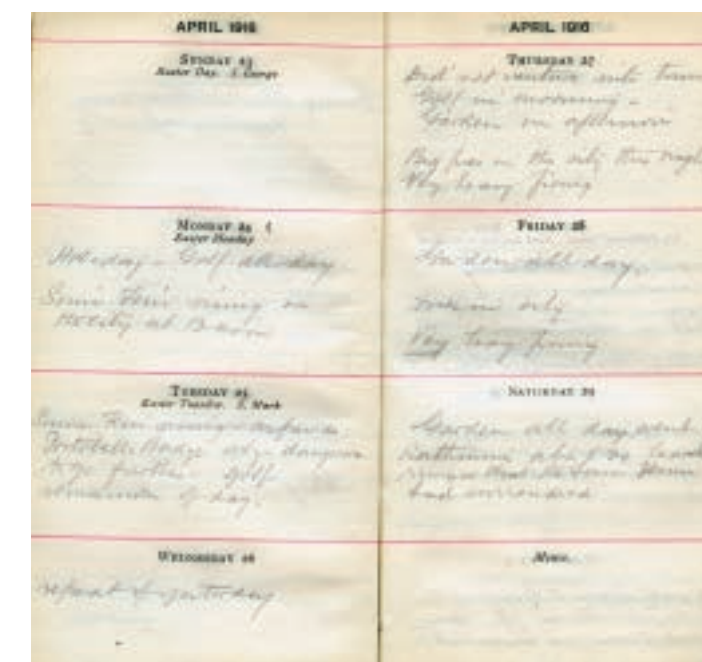 APRIL 1916
SUNDAY 23
Easter Day. S. George
MONDAY 24
Easter Monday
Holiday - Golf all day
Sinn Fein rising in
city at noon
TUESDAY 25
Easter Tuesday. S. Mark
Sinn Fein rising
Portobello Bridge
to go further - golf
remainder of day.
WEDNESDAY 26
repeat of yesterday
APRIL 1916
THURSDAY 27
Did not venture into town
Golf in morning -
Garden in afternoon
Big fires in the city this night
Very heavy firing
FRIDAY 28
Garden all day.
fires in city
Very heavy firing
SATURDAY 29
Garden all day went
Rathmines
had surrendered
Memo.